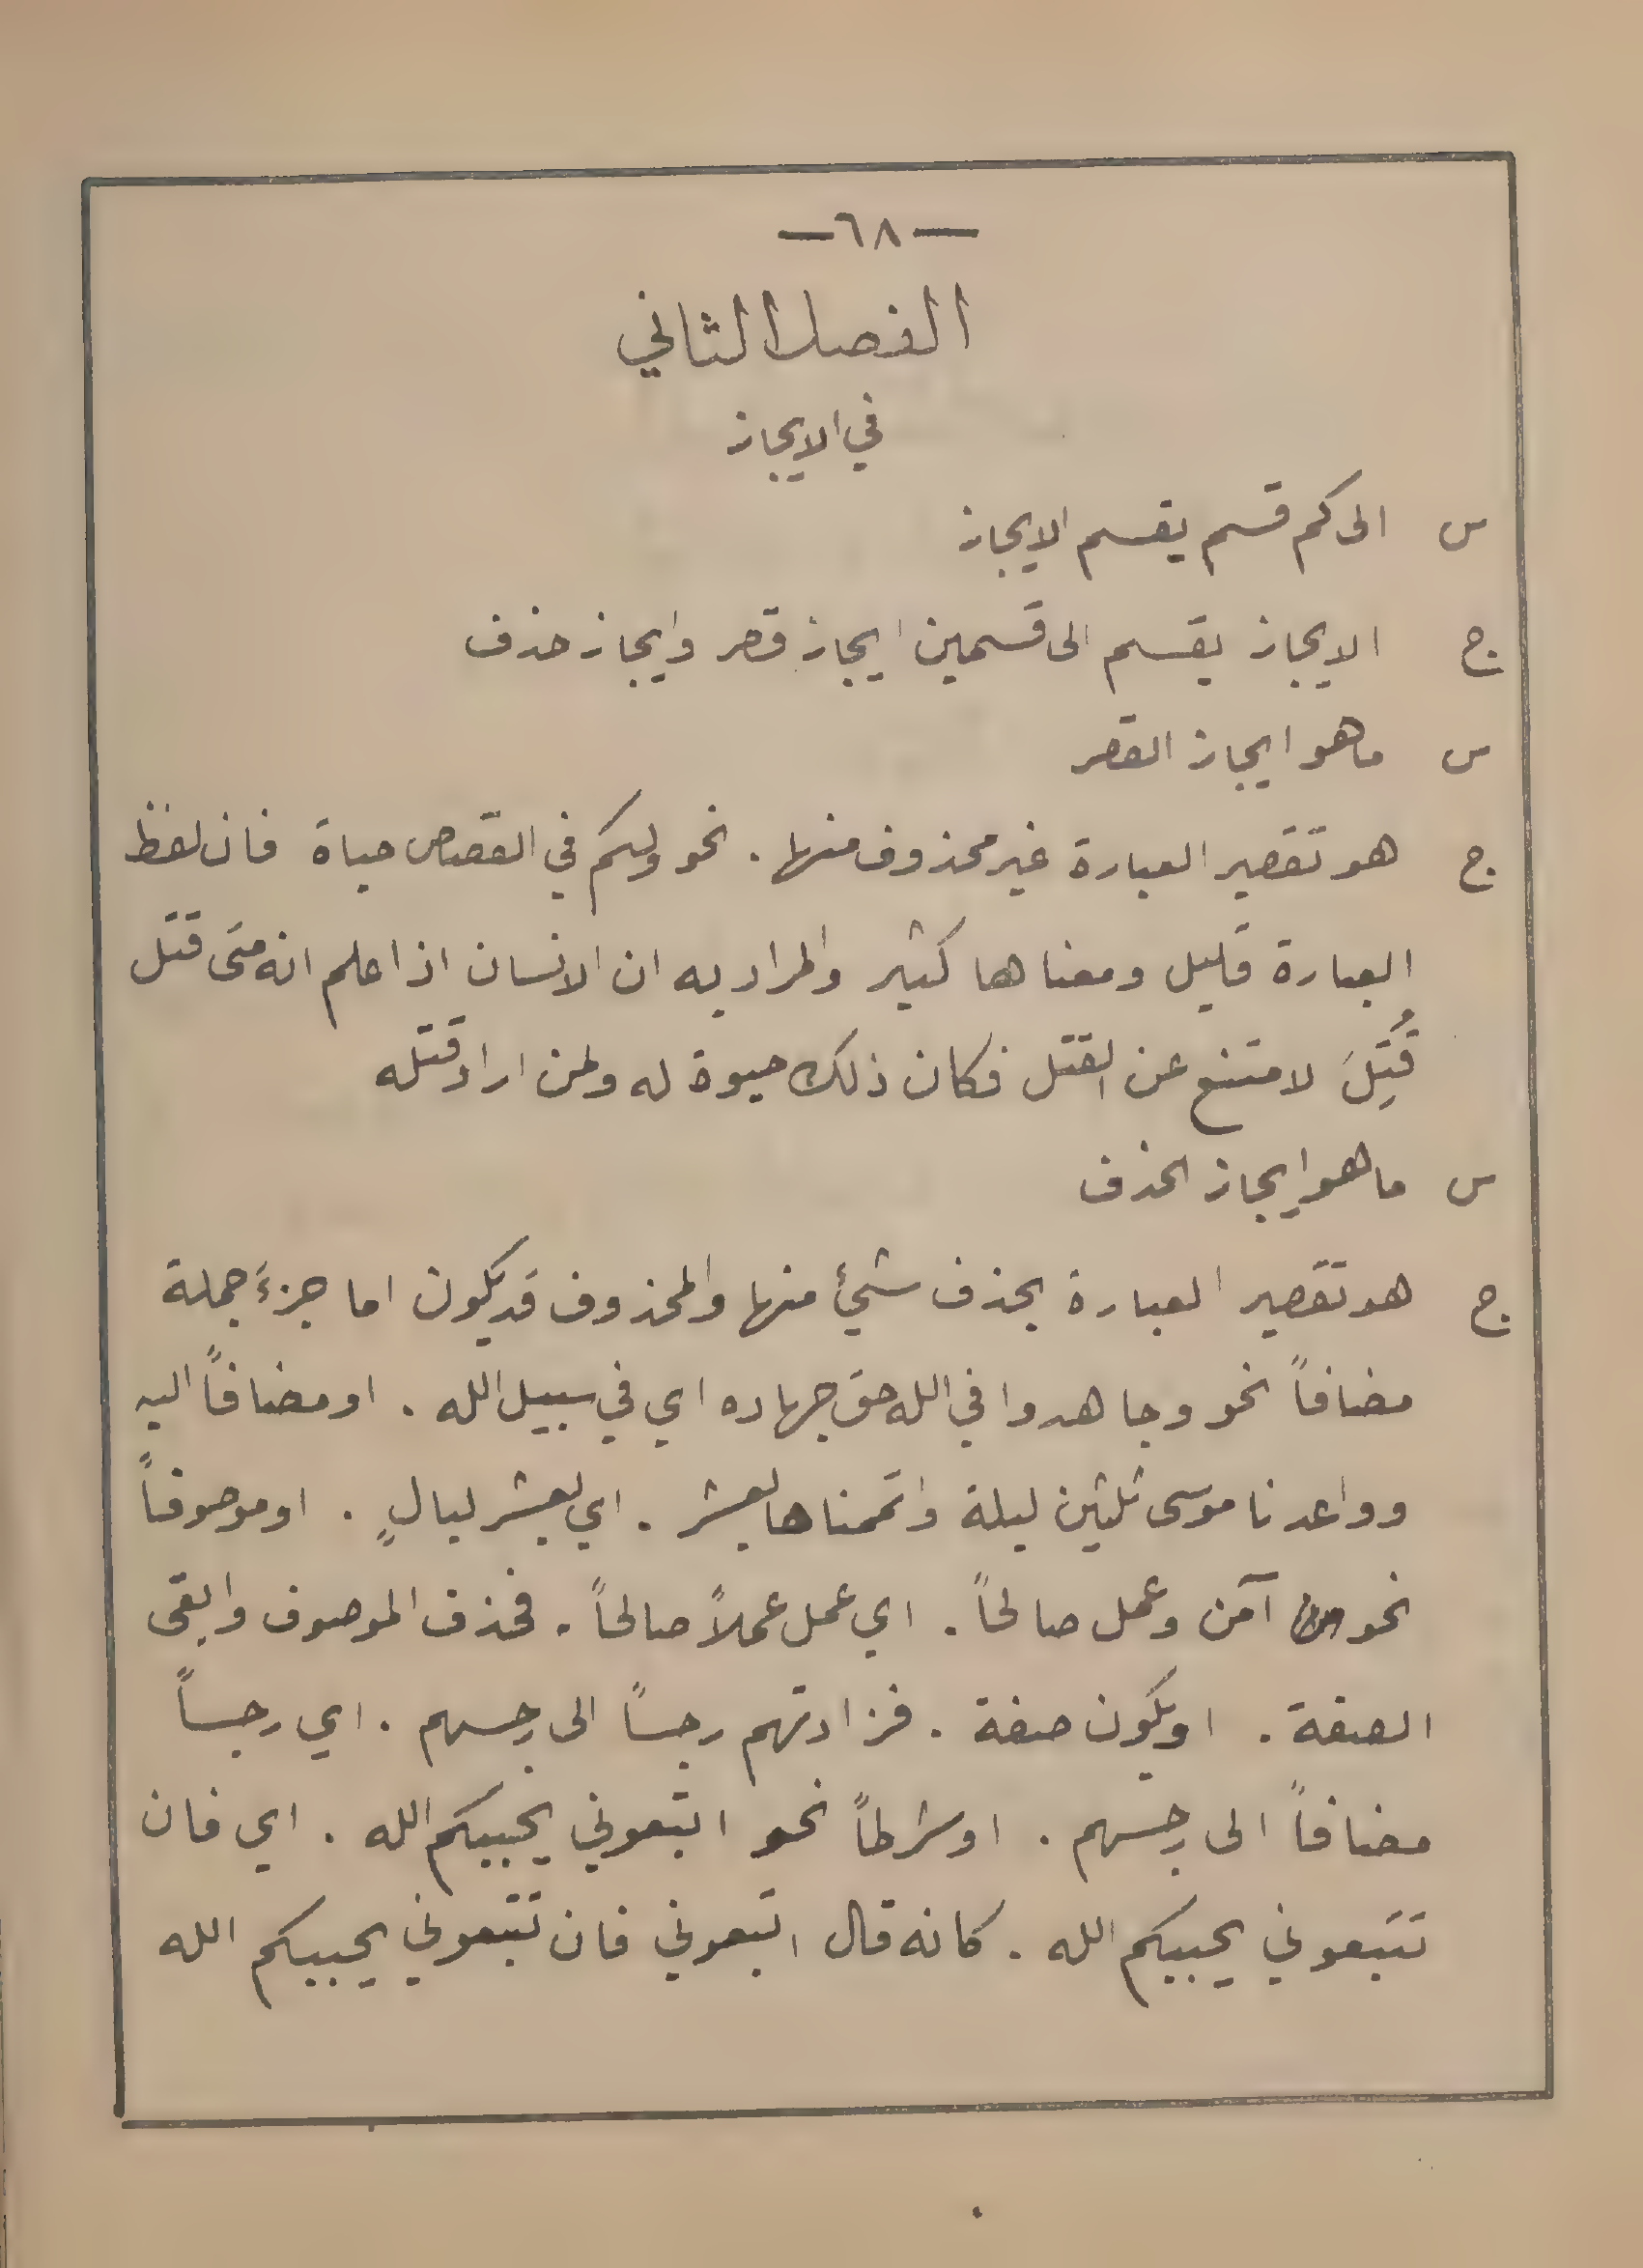 —٦٨—
الفصل الثاني
في الايجاز
س الى كم قسم يقسم الايجاز
ج الايجاز يقسم الى قسمين ايجاز قصر وايجاز حذف
س ما هو ايجاز القصر
ج هو تقصير العبارة غير محذوف منها . نحو ولكم في القصاص حياة فان لفظ
العبارة قليل ومعناها كثير والمراد به ان الانسان اذا علم انه متى قتل
قُتِلَ لامتنع عن القتل فكان ذلك حيوة له ولمن اراد قتله
س ما هو ايجاز الحذف
ج هو تقصير العبارة بحذف شيئ منها والمحذوف قد يكون اما جزءَ جملة
مضافاً نحو وجاهدوا في الله حق جهاده اي في سبيل الله . او مضافاً اليه
وواعدنا موسى ثلثين ليلة واتممناها بعشر . اي بعشر ليالٍ . او موصوفاً
نحو من آمن وعمل صالحاً . اي عمل عملاً صالحاً . فحذف الموصوف وابقى
الصفة . او يكون صفة . فزادتهم رجساً الى رجسهم . اي رجساً
مضافاً الى رجسهم . او شرطاً نحو اتبعوني يحببكم الله . اي فان
تتبعوني يحببكم الله . كانه قال اتبعوني فان تتبعوني يحببكم الله